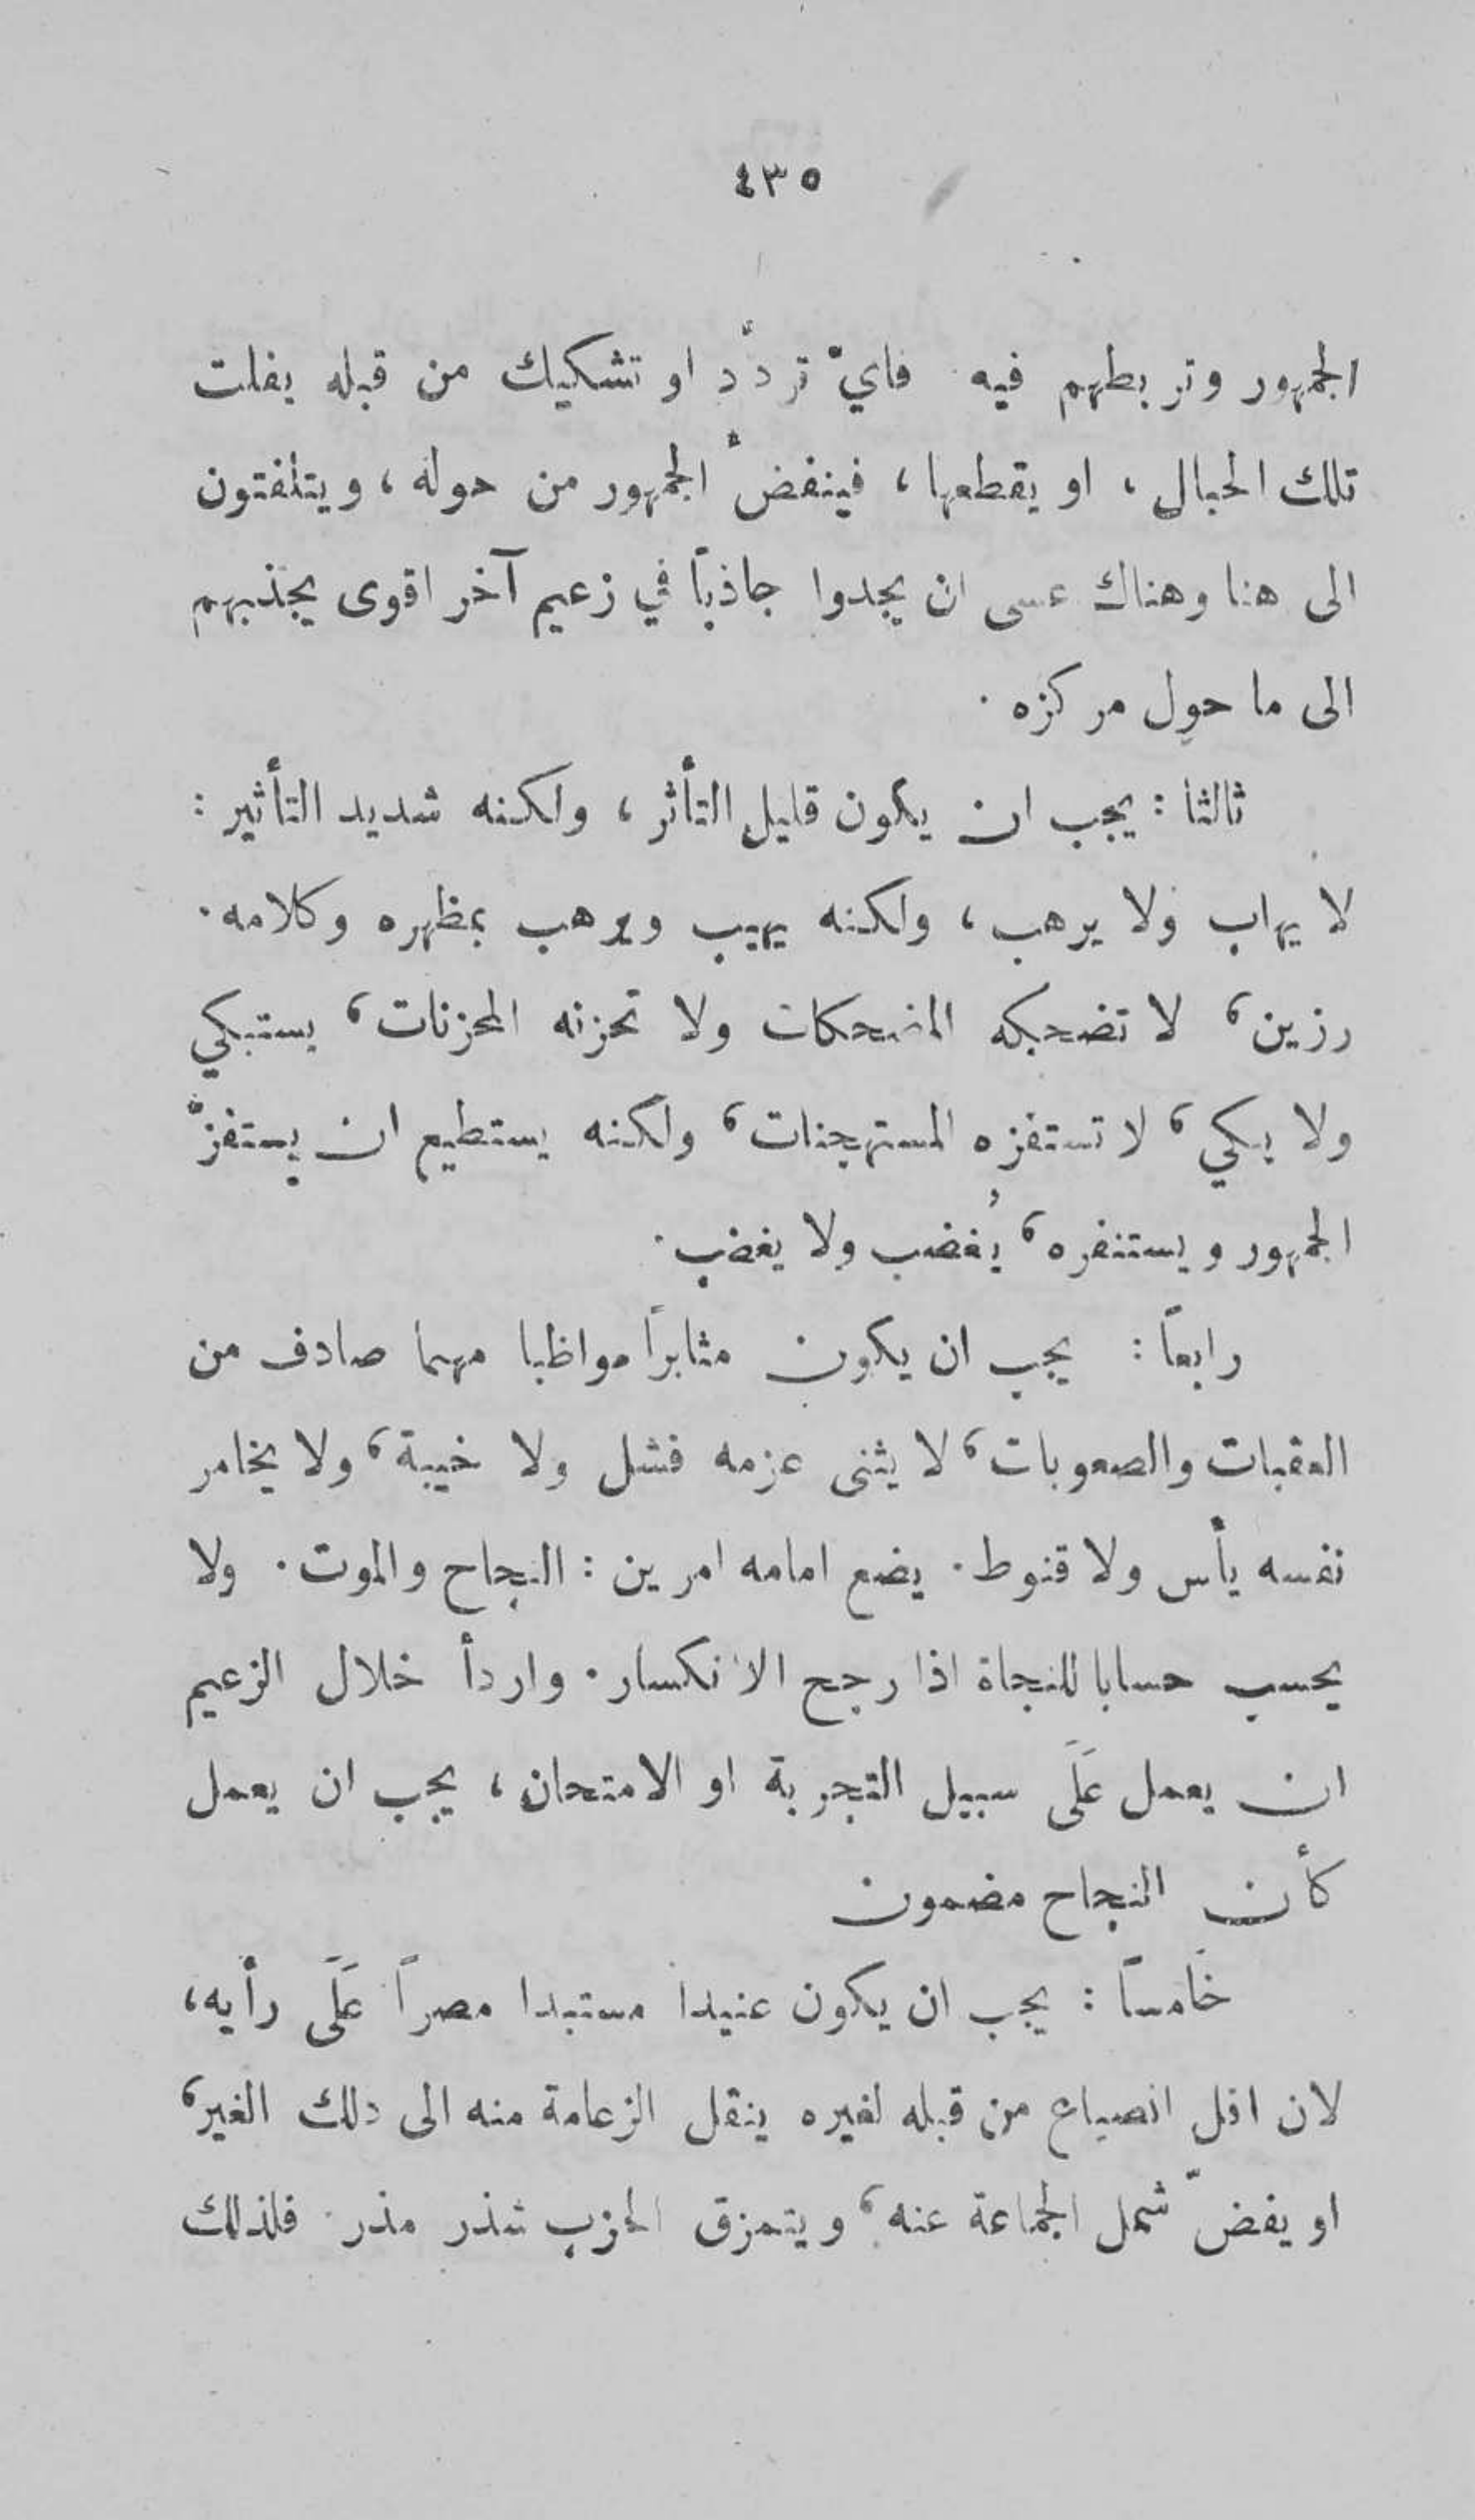 ٤٣٥
الجمهور وتربطهم فيه. فايّ تردّد او تشكيك من قبله يفلت
تلك الحبال، او يقطعها، فينفضّ الجمهور من حوله، ويتلفتون
الى هنا وهناك عسى ان يجدوا جاذباً في زعيم آخر اقوى يجذبهم
الى ما حول مركزه.
ثالثا: يجب ان يكون قليل التأثر، ولكنه شديد التأثير:
لا يهاب ولا يرهب، ولكنه يهيب ويرهب بمظهره وكلامه.
رزين، لا تضحكه المضحكات ولا تحزنه المحزنات، يستبكي
ولا يبكي، لا تستفزه المستهجنات، ولكنه يستطيع ان يستفزّ
الجمهور ويستنفره، يُغضب ولا يغضب.
رابعاً: يجب ان يكون مثابراً مواظبا مهما صادف من
العقبات والصعوبات، لا يثنى عزمه فشل ولا خيبة، ولا يخامر
نفسه يأس ولا قنوط. يضع امامه امرين: النجاح والموت. ولا
يحسب حسابا للنجاة اذا رجح الانكسار. واردأ خلال الزعيم
ان يعمل عَلَى سبيل التجربة او الامتحان، يجب ان يعمل
كأن النجاح مضمون
خامساً: يجب ان يكون عنيدا مستبدا مصراً عَلَى رأيه،
لان اقل انصياع من قبله لغيره ينقل الزعامة منه الى ذلك الغير،
او يفضّ شمل الجماعة عنه، ويتمزق الحزب شذر مذر. فلذلك